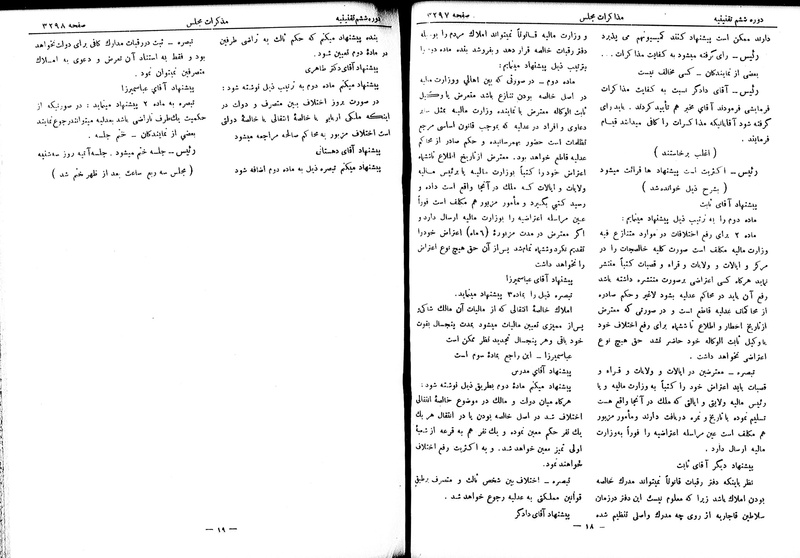 دوره ششم تقنینیه
مذاکرات مجلس
صفحه ۳۲۹۷
دارند ممکن است پیشنهاد کنند کمیسیونهم می پذیرد
رئیس ــ رأی گرفته میشود به کفایت مذاکرات . . .
بعضی از نمایندگان ــ کسی مخالف نیست
رئیس ــ آقای دادگر نسبت به کفایت مذاکرات
فرمایشی فرمودند آقای مخبر هم تأیید کردند . باید رأی
گرفته شود آقایانیکه مذاکرات را کافی میدانند قیام
فرمایند .
( اغلب برخاستند )
رئیس ــ اکثریت است پیشنهاد ها قرائت میشود
( بشرح ذیل خوانده شد )
پیشنهاد آقای ثابت
ماده دوم را به ترتیب ذیل پیشنهاد مینمایم :
ماده ۲ برای رفع اختلافات در موارد متنازع فیه
وزارت مالیه مکلف است صورت کلیه خالصجات را در
مرکز و ایالات و ولایات و قراء و قصبات کتباً منتشر
نماید هرگاه کسی اعتراضی برصورت منتشره داشته باشد
رفع آن باید در محاکم عدلیه بشود لاغیر و حکم صادره
از محاکمات عدلیه قاطع است و در صورتی که معترض
از تاریخ اخطار و اطلاع تا ششماه برای رفع اختلاف خود
یا وکیل ثابت الوکاله خود حاضر نشد حق هیچ نوع
اعتراضی نخواهد داشت .
تبصره ــ معترضین در ایالات و ولایات و قراء و
قصبات باید اعتراض خود را کتباً به وزارت مالیه و یا
رئیس مالیه ولایتی و ایالتی که ملک در آنجا واقع هست
تسلیم نموده با تاریخ و نمره دریافت دارند ومأمور مزبور
هم مکلف است عین مراسله اعتراضیه را فوراً به وزارت
مالیه ارسال دارد .
پیشنهاد دیگر آقای ثابت
نظر باینکه دفتر رقبات قانوناً نمیتواند مدرک خالصه
بودن املاک باشد زیرا که معلوم نیست این دفتر درزمان
سلاطین قاجاریه از روی چه مدرک واصلی تنظیم شده
و وزارت مالیه قانوناً نمیتواند املاک مردم را بوسیله
دفتر رقبات خالصه قرار دهد و بفروشد بنده ماده دوم را
بترتیب ذیل پیشنهاد مینمایم :
ماده دوم ــ در صورتی که بین اهالی ووزارت مالیه
در اصل خالصه بودن تنازع باشد متعرض یا وکیل
ثابت الوکاله معترض با نماینده وزارت مالیه مثل سایر
دعاوی و افراد در عدلیه که بموجب قانون اساسی مرجع
تظلمات است حضور بهمرسانیده و حکم صادر از محاکم
عدلیه قاطع خواهد بود . معترض ازتاریخ اطلاع تاششماه
اعتراض خود را کتباً بوزارت مالیه یا برئیس مالیه
ولایات و ایالات که ملک در آنجا واقع است داده و
رسید کتبی بگیرد و مأمور مزبور هم مکلف است فوراً
عین مراسله اعتراضیه را بوزارت مالیه ارسال دارد و
اگر معترض در مدت مزبورهٔ (۶ ماه) اعتراض خود را
تقدیم نکرد وششماه تمام شد پس از آن حق هیچ نوع اعتراض
را نخواهد داشت
پیشنهاد آقای عباسمیرزا
تبصره ذیل را بماده ۳ پیشنهاد مینماید.
املاک خالصهٔ انتقالی که از مالیات آن مالک شاکی و
پس از ممیزی تعیین مالیات میشود بمدت پنجسال بقوت
خود باقی وهر پنجسال تجدید نظر ممکن است
عباسمیرزا ــ این راجع بمادهٔ سوم است
پیشنهاد آقای مدرس
پیشنهاد میکنم مادهٔ دوم بطریق ذیل نوشته شود :
هرگاه میان دولت و مالک در موضوع خالصهٔ انتقالی
اختلاف شد در اصل خالصه بودن یا در انتقال هر یک
یک نفر حکم معین نموده و یک نفر هم به قرعه از شعبهٔ
اولی تمیز معین خواهد شد. و به اکثریت رفع اختلاف
خواهند نمود.
تبصره ــ اختلاف بین شخص ثالث و متصرف برطبق
قوانین مملکتی به عدلیه رجوع خواهد شد .
پیشنهاد آقای دادگر
ــ ۱۸ ــ
دوره ششم تقنینیه
مذکرات مجلس
صفحه ۳۲۹۸
بنده پیشنهاد میکنم که حکم ثالث به تراضی طرفین
در مادهٔ دوم تعیین شود.
پیشنهاد آقای دکتر طاهری
پیشنهاد میکنم ماده دوم به ترتیب ذیل نوشته شود :
در صورت بروز اختلاف بین متصرف و دولت در
اینکه ملک اربابی یا خالصهٔ انتقالی یا خالصهٔ دولتی
است اختلاف مزبور به محاکم صالحه مراجعه میشود
پیشنهاد آقای دهستانی
پیشنهاد میکنم تبصره ذیل به ماده دوم اضافه شود
تبصره ــ ثبت دررقبات مدارک کافی برای دولت نخواهد
بود و فقط به استناد آن تعرض و دعوی به املاک
متصرفین نمیتوان نمود .
پیشنهاد آقای عباسمیرزا
تبصره به ماده ۲ پیشنهاد مینماید : در صورتیکه از
حکمیت یکطرف ناراضی باشد بعدلیه میتوانند رجوع نمایند
بعضی از نمایندگان ــ ختم جلسه .
رئیس ــ جلسه ختم میشود . جلسه آتیه روز سه شنبه
( مجلس سه ربع ساعت بعد از ظهر ختم شد )
ــ ۱۹ ــ